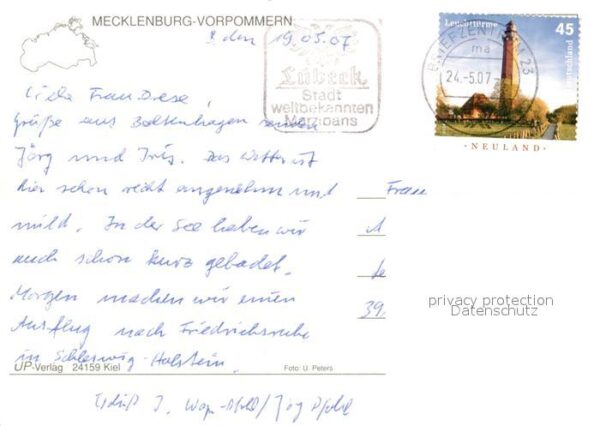 MECKLENBURG-VORPOMMERN
den 19.05.07
Liebe Frau Drese,
Grüße aus Boltenhagen senden
Jörg und Iris. Das Wetter ist
hier schon recht angenehm und
mild. In der See haben wir
auch schon kurz gebadet.
Morgen machen wir einen
Ausflug nach Friedrichsruhe
in Schleswig-Holstein.
UP-Verlag 24159 Kiel
Foto: U. Peters
Lübeck
Stadt
weltbekannten
Marzipans
BRIEFZENTRUM 23
ma
24.-5.07
Leuchttürme
45
Deutschland
NEULAND
Frau
39
privacy protection
Datenschutz